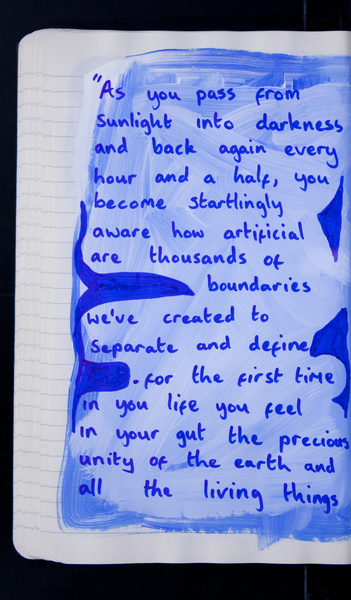 "As you pass from
sunlight into darkness
and back again every
hour and a half, you
become startlingly
aware how artificial
are thousands of
boundaries
we've created to
separate and define
. for the first time
in you life you feel
in your gut the precious
unity of the earth and
all the living things